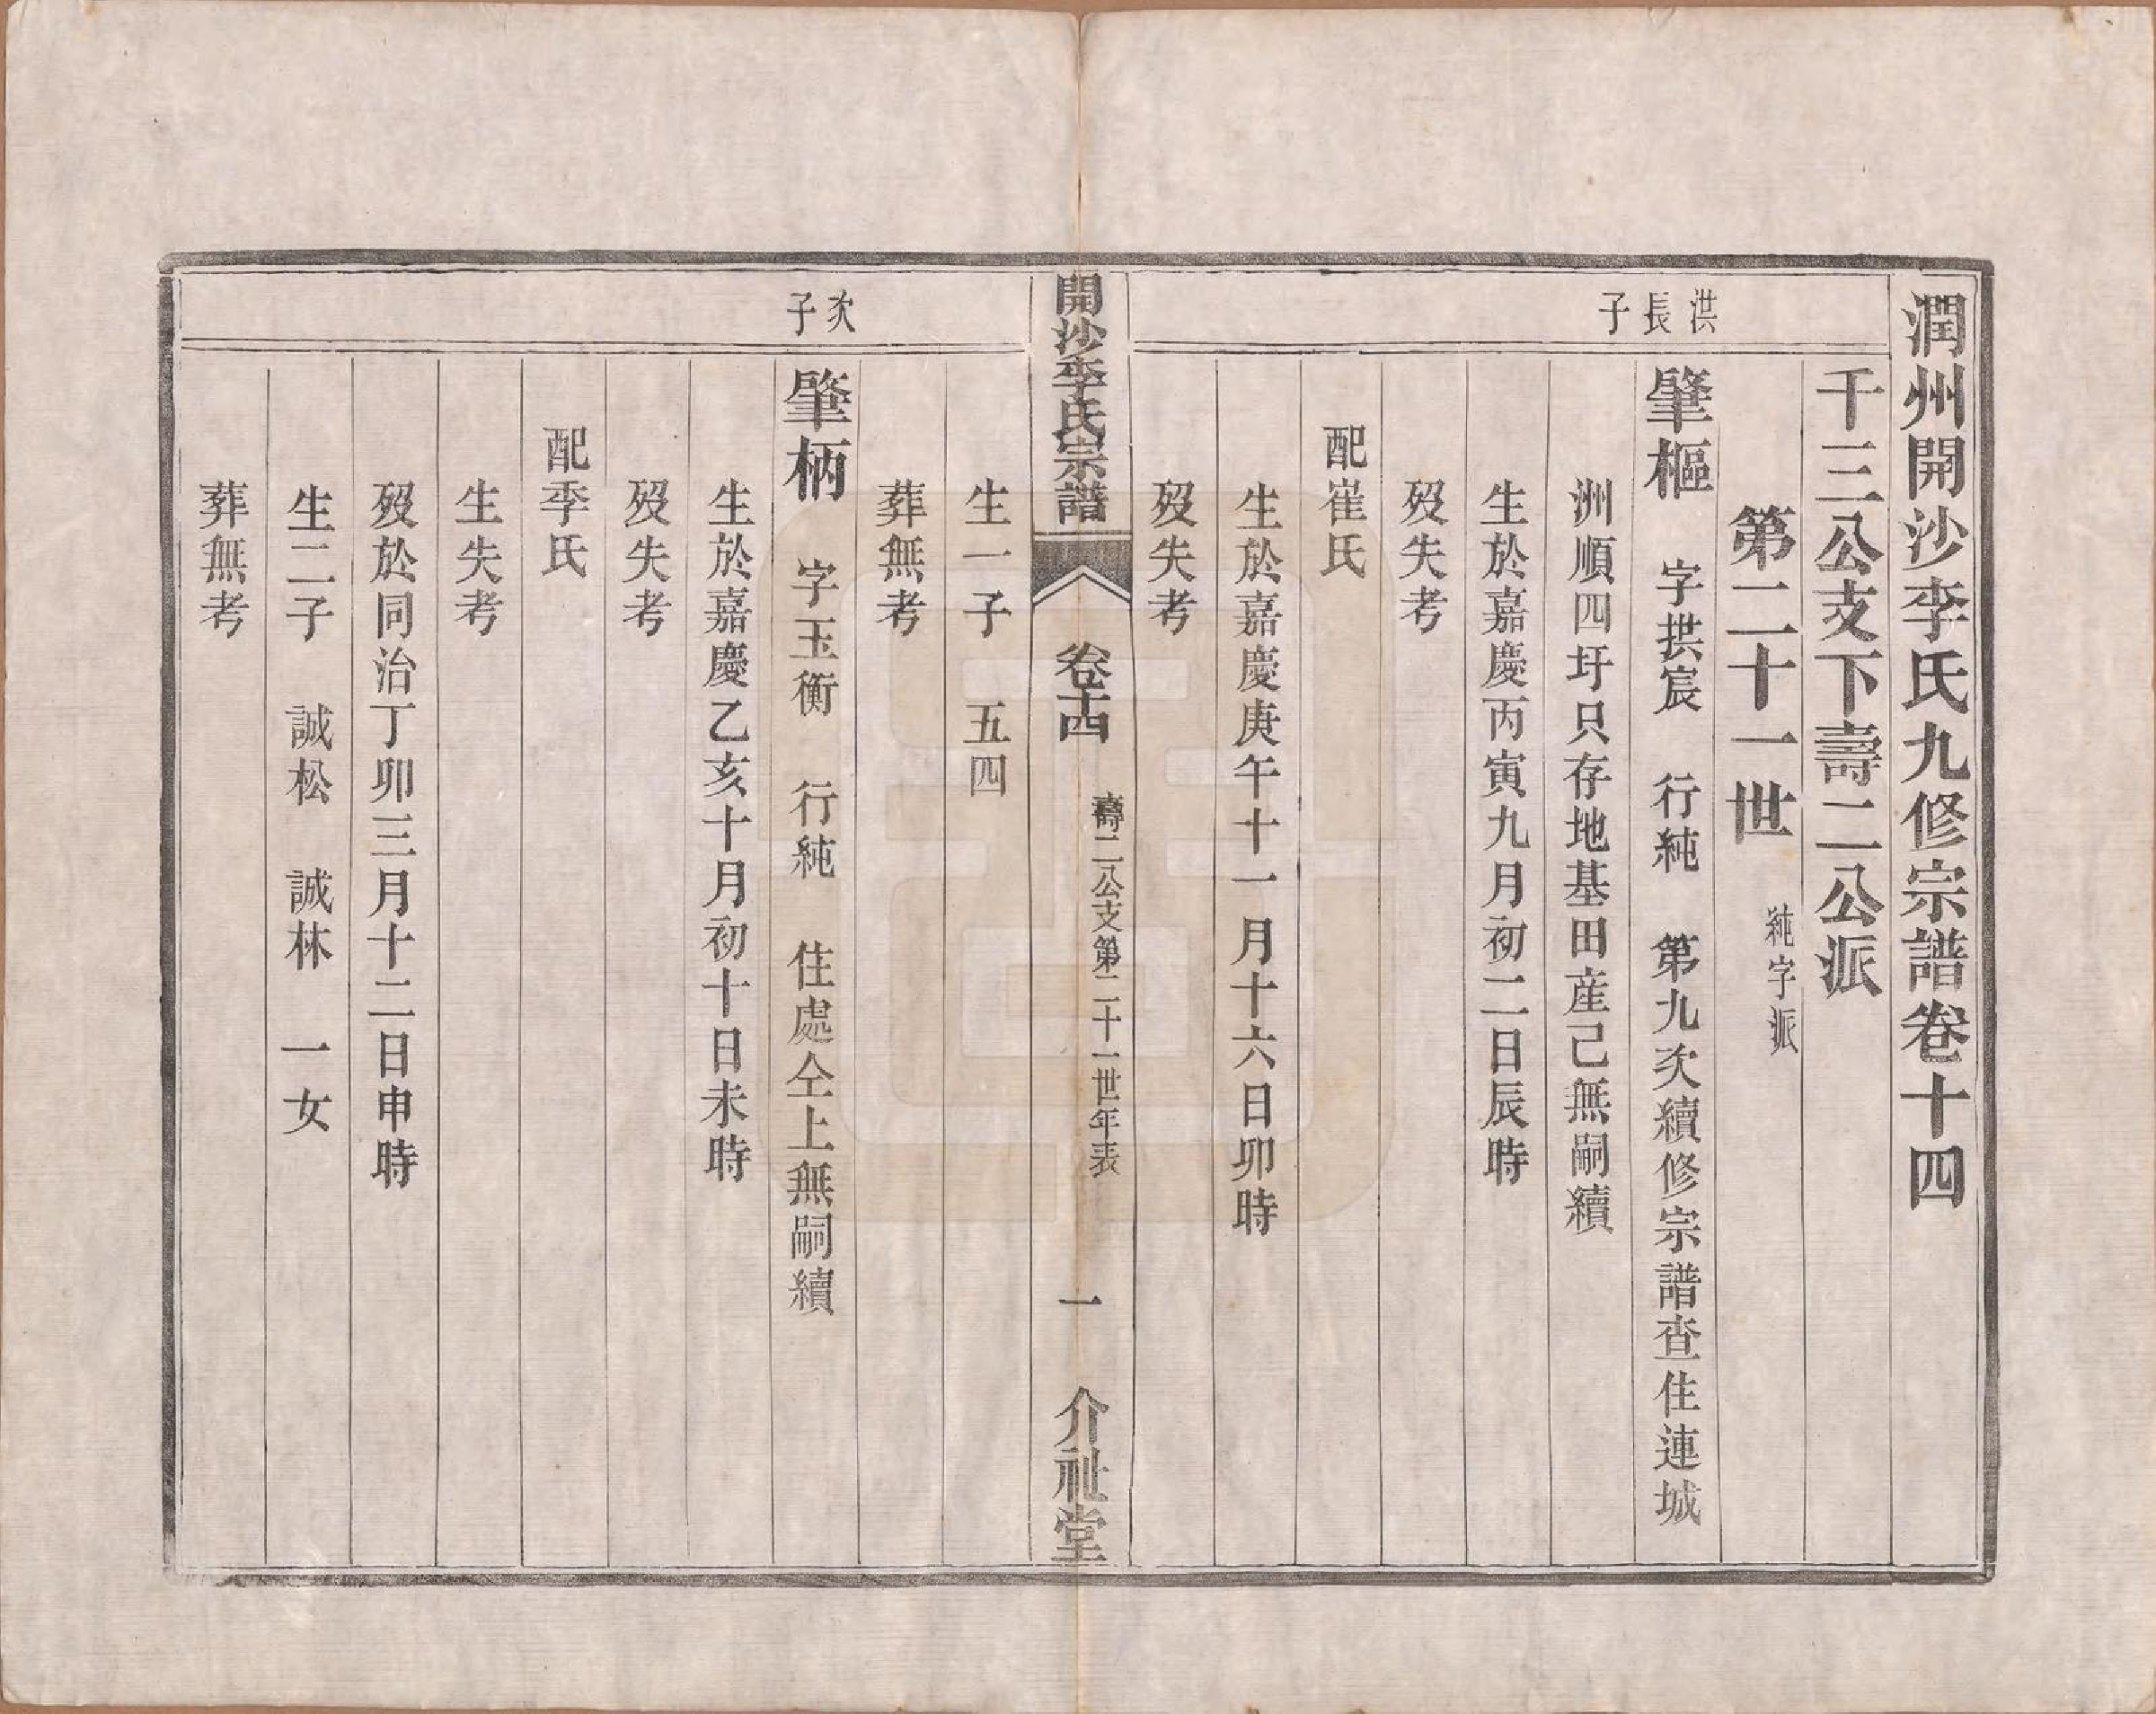 潤州開沙李氏九修宗譜卷十四
千三公支下壽二公派
第二十一世 純字派
洪長子
肇樞 字拱宸 行純 第九次續修宗譜查住連城
洲順四圩只存地基田產己無嗣續
生於嘉慶丙寅九月初二日辰時
歿失考
配崔氏
生於嘉慶庚午十一月十六日卯時
歿失考
開沙李氏宗譜 卷十四 壽二公支第二十一世年表 一 介祉堂
生一子 五四
葬無考
次子
肇柄 字玉衡 行純 住處仝上無嗣續
生於嘉慶乙亥十月初十日未時
歿失考
配季氏
生失考
歿於同治丁卯三月十二日申時
生二子 誠松 誠林 一女
葬無考